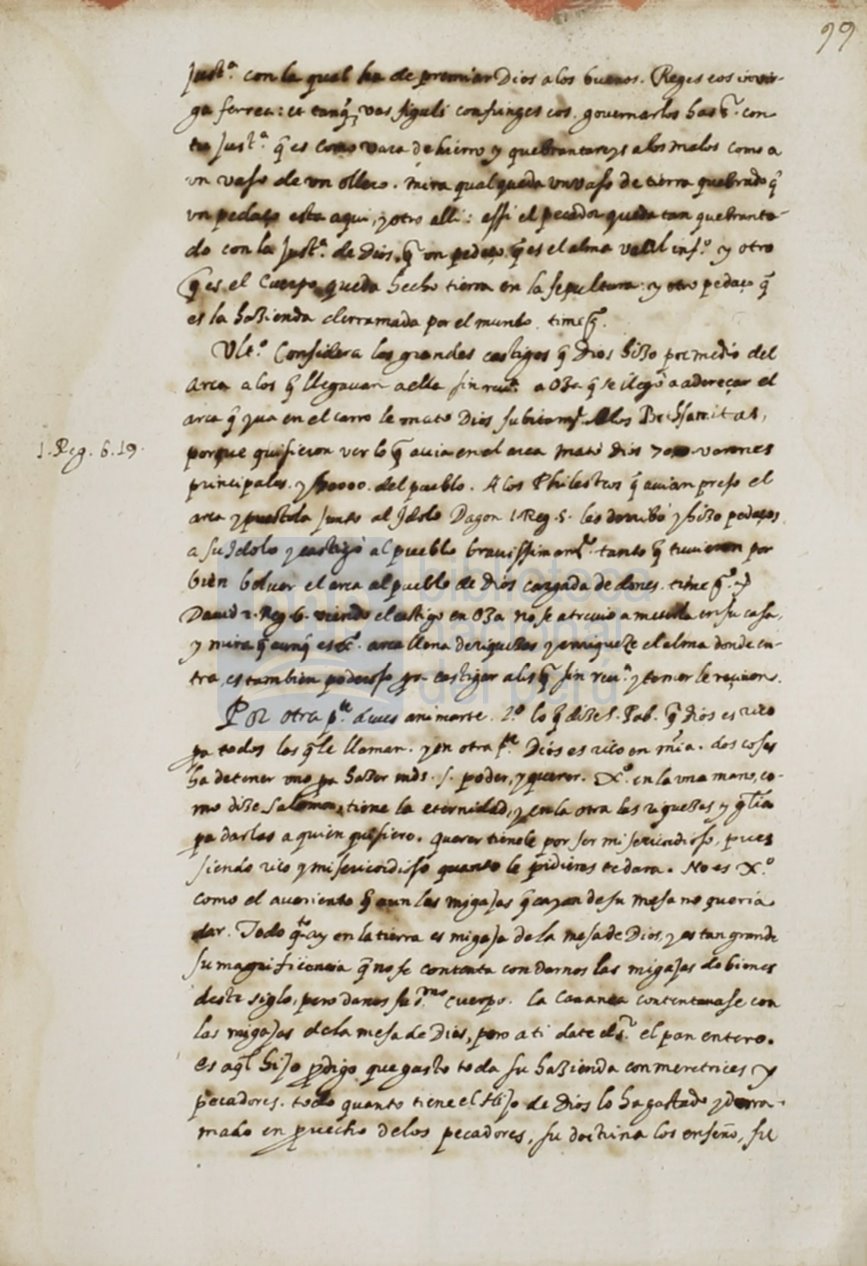 99
Just.ª con la qual ha de premiar Dios a los buenos. Reges eos in vir-
ga ferrea: et tanq̃ vas figuli confringes eos. governarlos has S.r con
tu just.ª q̃ es como vara de hierro y quebrantareys a los malos como a
un vaso de un ollero. mira qual queda un vaso de tierra quebrado q̃
un pedaço esta aqui, y otro alli: assi el pecador queda tan quebranta-
do con la Just.ª de Dios, q̃ un pedaço q̃ es el alma va al inf.º y otro
q̃ es el Cuerpo queda hecho tierra en la sepultura y otro pedaço q̃
es la hazienda derramada por el mundo. time
Ult.º Considera los grandes castigos q̃ Dios hizo por medio del
Arca a los q̃ llegavan a ella sin reu.ª a Oza q̃ se llegó a adereçar el
arca q̃ yva en el carro le mató Dios subitam.te A los Bethsamitas,
1. Reg. 6. 19.
porque quisieron ver lo q̃ avia en el arca mató Dios 70 varones
principales y 50000. del pueblo. A los Philisteos q̃ avian preso el
arca y puestola junto al Idolo Dagon 1. Reg. 5. les derribó y hizo pedaços
a su Idolo y castigó al pueblo bravissimam.te tanto q̃ tuvieron por
bien bolver el arca al pueblo de Dios cargada de dones. time
David 2. Reg. 6. viendo el castigo en Oza no se atrevio a meterla en su casa,
y mira q̃ aunq̃ es X.º arca llena de riquezas y enriqueze el alma donde en-
tra, es tambien poderoso pa castigar a los q̃ sin reu.ª y temor le reciven.
Por otra p.te deves animarte. 1.º lo q̃ dize S. Pab. q̃ Dios es rico
pa todos los q̃ le llaman. y en otra p.te Dios es rico en mĩa. dos cosas
ha de tener uno pa hazer mds. s. poder, y querer. X.º en la una mano, co-
mo dize Salomon, tiene la eternidad, y en la otra las riquezas y glĩa
pa darlas a quien quisiere. Querer tienele por ser misericordioso, pues
siendo rico y misericordioso quanto le pidieres te dara. No es X.º
como el avariento q̃ aun las migajas q̃ cayan de su mesa no queria
dar. Todo q.to ay en la tierra es migaja de la mesa de Dios, y es tan grande
su magnificencia q̃ no se contenta con darnos las migajas de bienes
deste siglo, pero danos su S.mo cuerpo. La Cananea contentavase con
las migajas de la mesa de Dios, pero a ti date el S.r el pan entero.
es aql̃ hijo prodigo que gasto toda su hazienda con meretrices y
pecadores. todo quanto tiene el Hijo de Dios lo ha gastado y derra-
mado en provecho de los pecadores, su doctrina los enseño, su